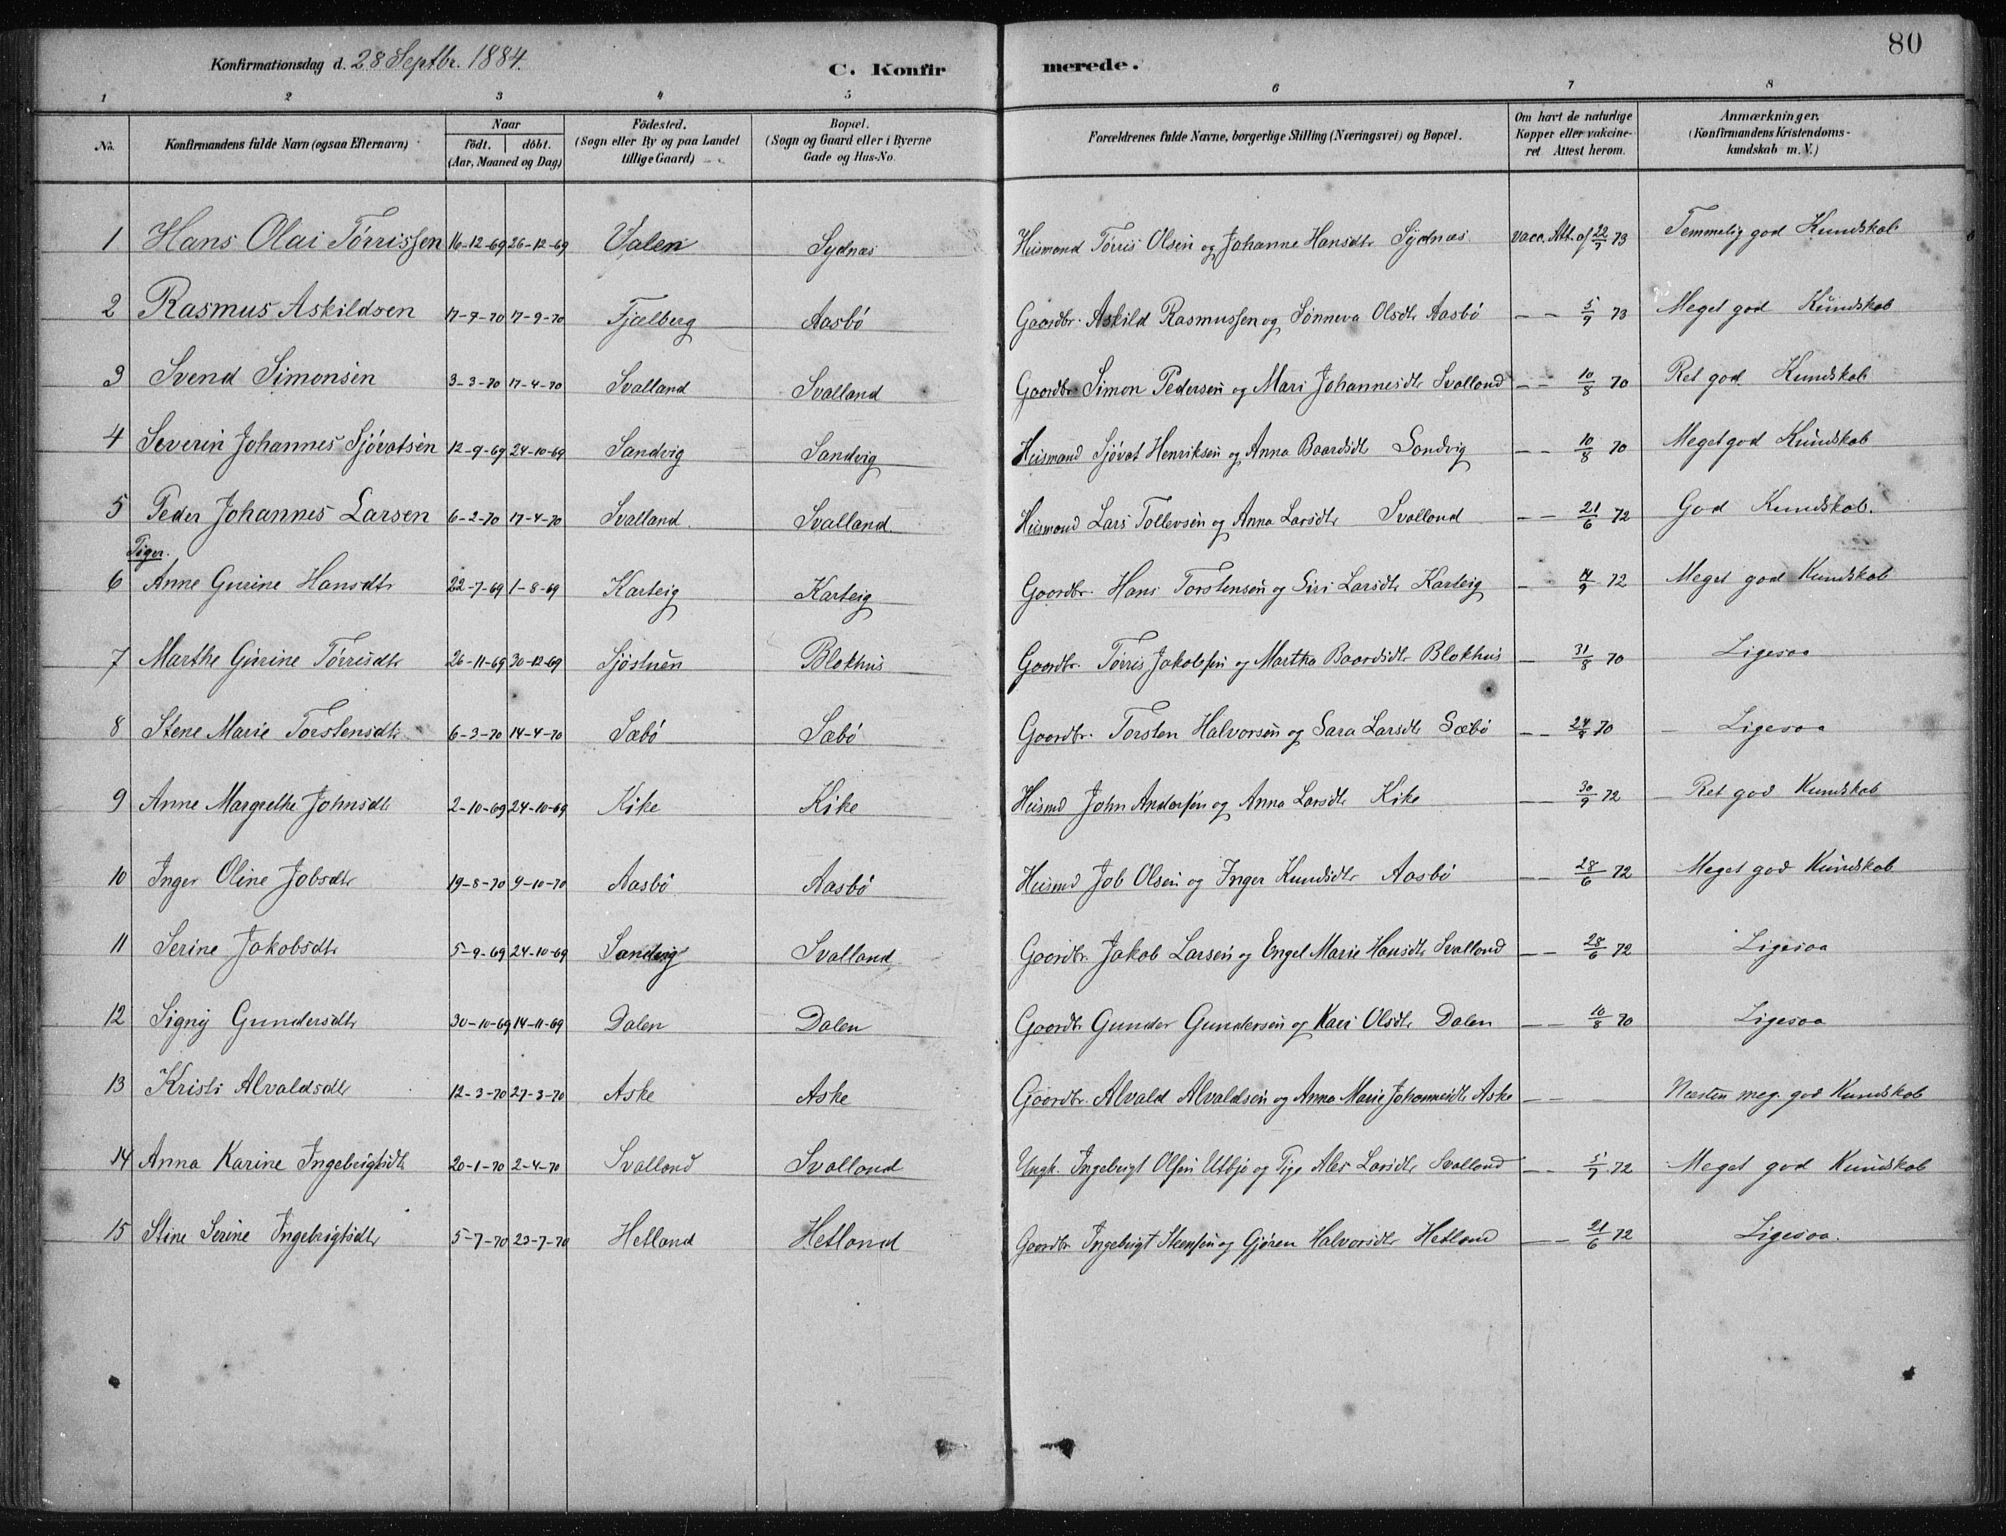 80
Konfirmationsdag d. 28 Septbr. 1884.
C. Konfirmerede.
1 2 3 4 5 6 7 8
No. Konfirmandens fulde Navn (ogsaa Efternavn) Naar født. døbt. (Aar, Maaned og Dag) Fødested. (Sogn eller By og paa Landet tillige Gaard) Bopæl. (Sogn og Gaard eller i Byerne Gade og Hus-No. Forældrenes fulde Navne, borgerlige Stilling (Næringsvei) og Bopæl. Om havt de naturlige Kopper eller vakcineret Attest herom. Anmærkninger. (Konfirmandens Kristendomskundskab m. V.)
1 Hans Olai Tørrissen 16-12-69 26-12-69 Valen Sydnæs Husmand Tørris Olsen og Johanne Hansdtr Sydnæs vacc. Att. af 22/7 73 Temmelig god Kundskab
2 Rasmus Askildsen 17-7-70 17-9-70 Fjelberg Aasbø Gaardbr. Askild Rasmussen og Sønneva Olsdtr Aasbø — — 5/9 73 Meget god Kundskab
3 Svend Simonsen 3-3-70 17-4-70 Svalland Svalland Gaardbr Simon Pedersen og Mari Johannesdtr Svalland — — 10/8 70 Ret god Kundskab
4 Severin Johannes Sjøvatsen 12-9-69 24-10-69 Sandvig Sandvig Husmand Sjøvat Henriksen og Anna Baardsdtr Sandvig — — 10/8 70 Meget god Kundskab
5 Peder Johannes Larsen 6-2-70 17-4-70 Svalland Svalland Husmand Lars Tollevsen og Anna Larsdtr Svalland — — 21/6 72 God Kundskab.
Piger.
6 Anne Gurine Hansdtr 22-7-69 1-8-69 Karteig Karteig Gaardbr. Hans Torstensen og Siri Larsdtr Karteig — 72 Meget god Kundskab
7 Marthe Gurine Tørrisdtr 26-11-69 30-12-69 Sjøstuen Blokhus Gaardbr. Tørris Jakobsen og Martha Baardsdtr Blokhus — 31/8 70 Ligesaa
8 Stene Marie Torstensdtr 6-3-70 14-4-70 Sæbø Sæbø Gaardbr. Torsten Halvorsen og Sara Larsdtr Sæbø — — 24/8 70 Ligesaa
9 Anne Margrethe Johnsdtr 2-10-69 24-10-69 Kike Kike Husmd John Andersen og Anna Larsdtr Kike — — 30/9 72 Ret god Kundskab
10 Inger Oline Jobsdtr 19-8-70 9-10-70 Aasbø Aasbø Husmd Job Olsen og Inger Knudsdtr Aasbø — — 28/6 72 Meget god Kundskab
11 Serine Jakobsdtr 5-9-69 24-10-69 Sandvig Svalland Gaardbr. Jakob Larsen og Engel Marie Hansdtr Svalland — — 28/6 72 Ligesaa
12 Signy Gundersdtr 30-10-69 14-11-69 Dalen Dalen Gaardbr Gunder Gundersen og Kari Olsdtr Dalen — — 10/8 70 Ligesaa
13 Kristi Alvaldsdtr 12-3-70 27-3-70 Aske Aske Gaardbr. Alvald Alvaldsen og Anna Marie Johannesdtr Aske — — Næsten meg. god Kundskab
14 Anna Karine Ingebrigtsdtr 20-1-70 2-4-70 Svalland Svalland Ungk. Ingebrigt Olsen Utbjo og Pige Larsdtr Svalland — — 5/7 72 Meget god Kundskab
15 Stine Serine Ingebrigtsdtr 5-7-70 23-7-70 Hetland Hetland Gaardbr Ingebrigt Steensen og Gjøren Halvorsdtr Hetland — — 21/6 72 Ligesaa.